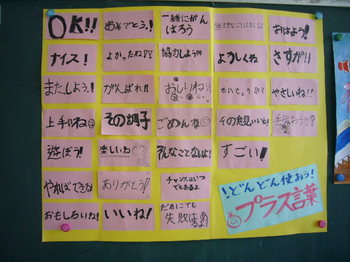 OK!!
おめでとう!
一緒にがん
ばろう
おはよう!
ナイス!
よかったね!!
協力しよう!!
よろしくね
さすが!!
またしよう!
がんばれ!!
おしいね
やさしいね!!
上手だね
その調子
ごめんね
その意見いいね!
遊ぼう!
楽しいね
そんなことないよ!
すごい!
やればできる
ありがとう!
チャンスはいつ
でもあるよ
おもしろいね!
いいね!
だれにでも
失敗はあるよ!
どんどん使おう!
プラス言葉